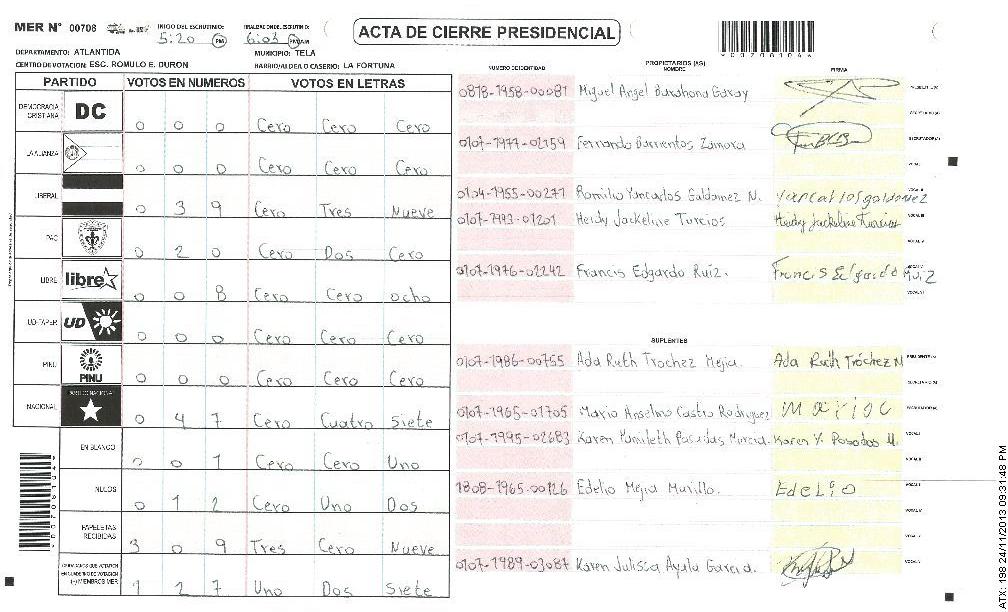 MER N° 00706 INICIO DEL ESCRUTINIO: 5:20 PM FINALIZACION DEL ESCRUTINIO: 6:03 PM
ACTA DE CIERRE PRESIDENCIAL
DEPARTAMENTO: ATLANTIDA MUNICIPIO: TELA
CENTRO DE VOTACION: ESC. ROMULO E. DURON BARRIO/ALDEA/O CASERIO: LA FORTUNA
PARTIDO VOTOS EN NUMEROS VOTOS EN LETRAS
DEMOCRACIA CRISTIANA DC 0 0 0 Cero Cero Cero
LA ALIANZA 0 0 0 Cero Cero Cero
LIBERAL 0 3 9 Cero Tres Nueve
PAC 0 2 0 Cero Dos Cero
LIBRE libre 0 0 8 Cero Cero ocho
UD-FAPER UD 0 0 0 Cero Cero Cero
PINU PINU 0 0 0 Cero Cero Cero
NACIONAL PARTIDO NACIONAL 0 4 7 Cero Cuatro Siete
EN BLANCO 0 0 1 Cero Cero Uno
NULOS 0 1 2 Cero Uno Dos
PAPELETAS RECIBIDAS 3 0 9 Tres Cero Nueve
CIUDADANOS QUE VOTARON EN CUADERNO DE VOTACION (+) MIEMBROS MER 1 2 7 Uno Dos Siete
NUMERO DE IDENTIDAD PROPIETARIOS (AS) NOMBRE FIRMA
0818-1958-00081 Miguel Angel Barahona Garay
0107-1977-02159 Fernando Barrientos Zamora
0104-1955-00271 Romilio Yancarlos Galdamez N.
0107-1993-01201 Heidy Jackeline Turcios Heidy Jackeline Turcios
0107-1976-02242 Francis Edgardo Ruiz. Francis Edgardo Ruiz
SUPLENTES
0107-1986-00755 Ada Ruth Trochez Mejia. Ada Ruth Tróchez M
0107-1965-01705 Mario Anselmo Castro Rodriguez Mario C
0107-1995-02683 Karen Posadas Murcia. Karen Y. Posadas M.
1808-1965-00126 Edelio Mejia Murillo. Edelio
0107-1989-03087 Karen Julissa Ayala Garcia.
ATX: 198 24/11/2013 09:31:48 PM